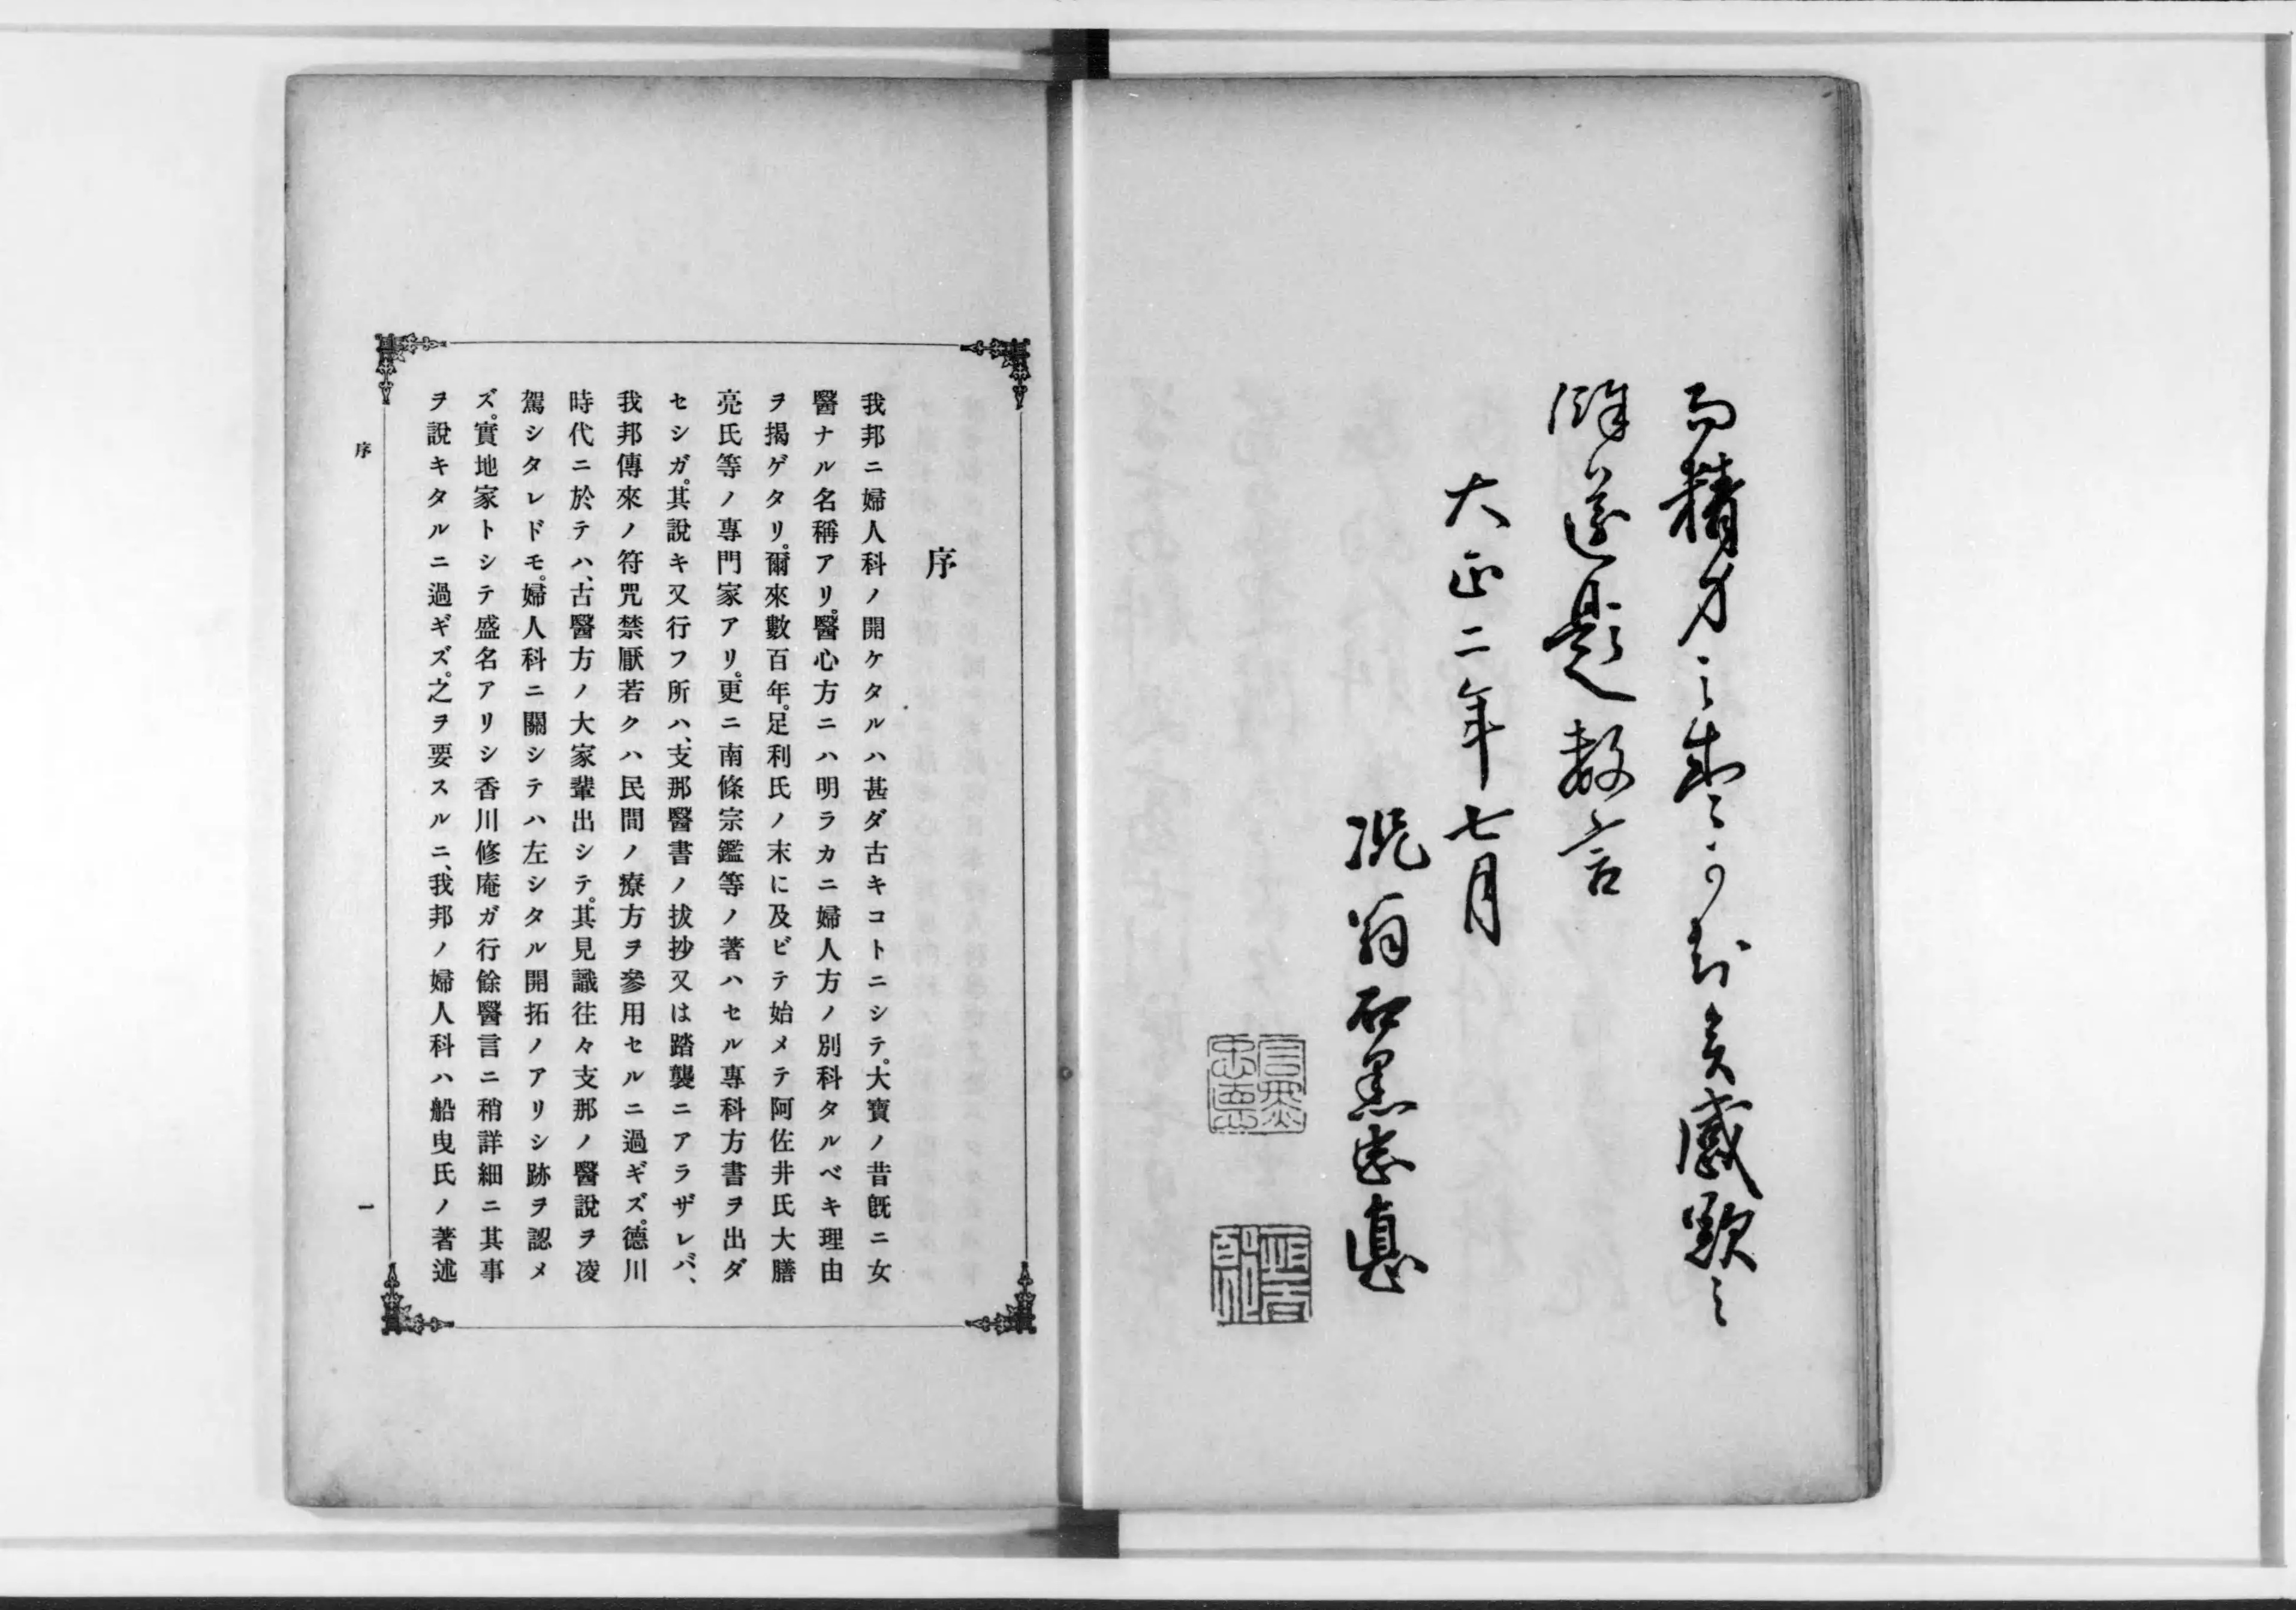 而精力之
感歎之
遂題數言
大正二年七月
況翁石黑忠悳
序
我邦ニ婦人科ノ開ケタルハ甚ダ古キコトニシテ。大寶ノ昔既ニ女
醫ナル名稱アリ。醫心方ニハ明ラカニ婦人方ノ別科タルベキ理由
ヲ揭ゲタリ。爾來數百年。足利氏ノ末に及ビテ始メテ阿佐井氏大膳
亮氏等ノ專門家アリ。更ニ南條宗鑑等ノ著ハセル專科方書ヲ出ダ
セシガ。其說キ又行フ所ハ、支那醫書ノ拔抄又は踏襲ニアラザレバ、
我邦傳來ノ符咒禁厭若クハ民間ノ療方ヲ參用セルニ過ギズ。德川
時代ニ於テハ、古醫方ノ大家輩出シテ。其見識往々支那ノ醫說ヲ凌
駕シタレドモ。婦人科ニ關シテハ左シタル開拓ノアリシ跡ヲ認メ
ズ。實地家トシテ盛名アリシ香川修庵ガ行餘醫言ニ稍詳細ニ其事
ヲ說キタルニ過ギズ。之ヲ要スルニ、我邦ノ婦人科ハ船曳氏ノ著述
序
一